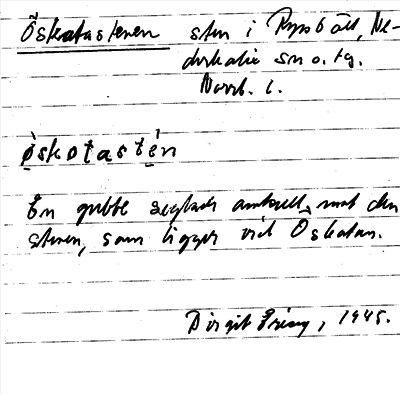 Öskatastenen sten i Rysbält, Ne-
derkalix sn o. tg.
Norrb. l.
öskọtastén
En gubbe seglade omkull mot den
stenen, som ligger vid Öskatan.
Birgit Frieng, 1945.